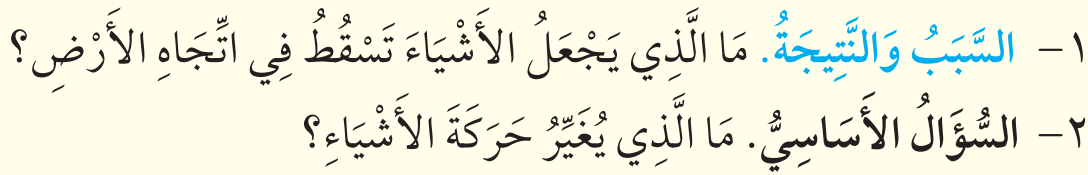 ١– السَّبَبُ وَالنَّتِيجَةُ. مَا الَّذِي يَجْعَلُ الأَشْيَاءَ تَسْقُطُ فِي اتِّجَاهِ الأَرْضِ؟
٢– السُّؤَالُ الأَسَاسِيُّ. مَا الَّذِي يُغَيِّرُ حَرَكَةَ الأَشْيَاءِ؟